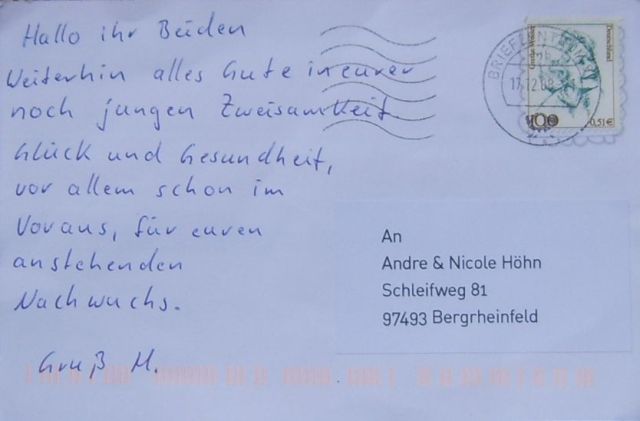 Hallo ihr Beiden
Weiterhin alles Gute in eurer
noch jungen Zweisamkeit.
Glück und Gesundheit,
vor allem schon im
Voraus, für euren
anstehenden
Nachwuchs.
Gruß M.
Deutschland
100
0,51€
17.12.08
An
Andre & Nicole Höhn
Schleifweg 81
97493 Bergrheinfeld